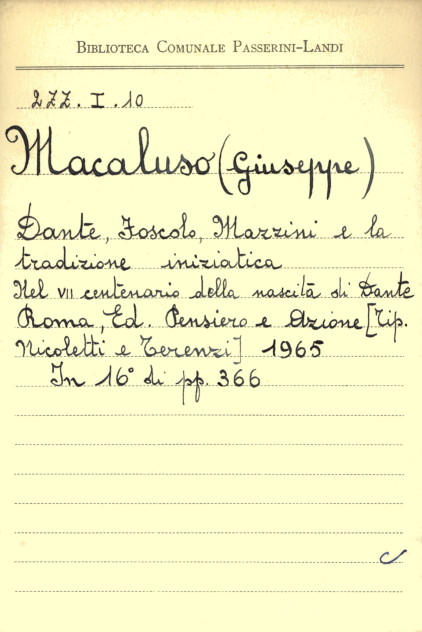 BIBLIOTECA COMUNALE PASSERINI-LANDI
2ZZ. I. 10
Macaluso (Giuseppe)
Dante, Foscolo, Mazzini e la
tradizione iniziatica
Nel VII centenario della nascità di Dante
Roma, Ed. Pensiero e Azione [Tip.
Nicoletti e Terenzi] 1965
In 16° di pp. 366